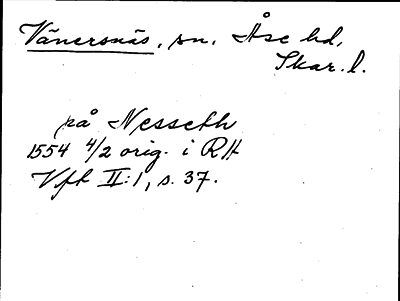 Vänersnäs, sn. Åse hd,
Skar. l.
på Nesseth
1554 4/2 orig. i RA
Vft II:1, s. 37.